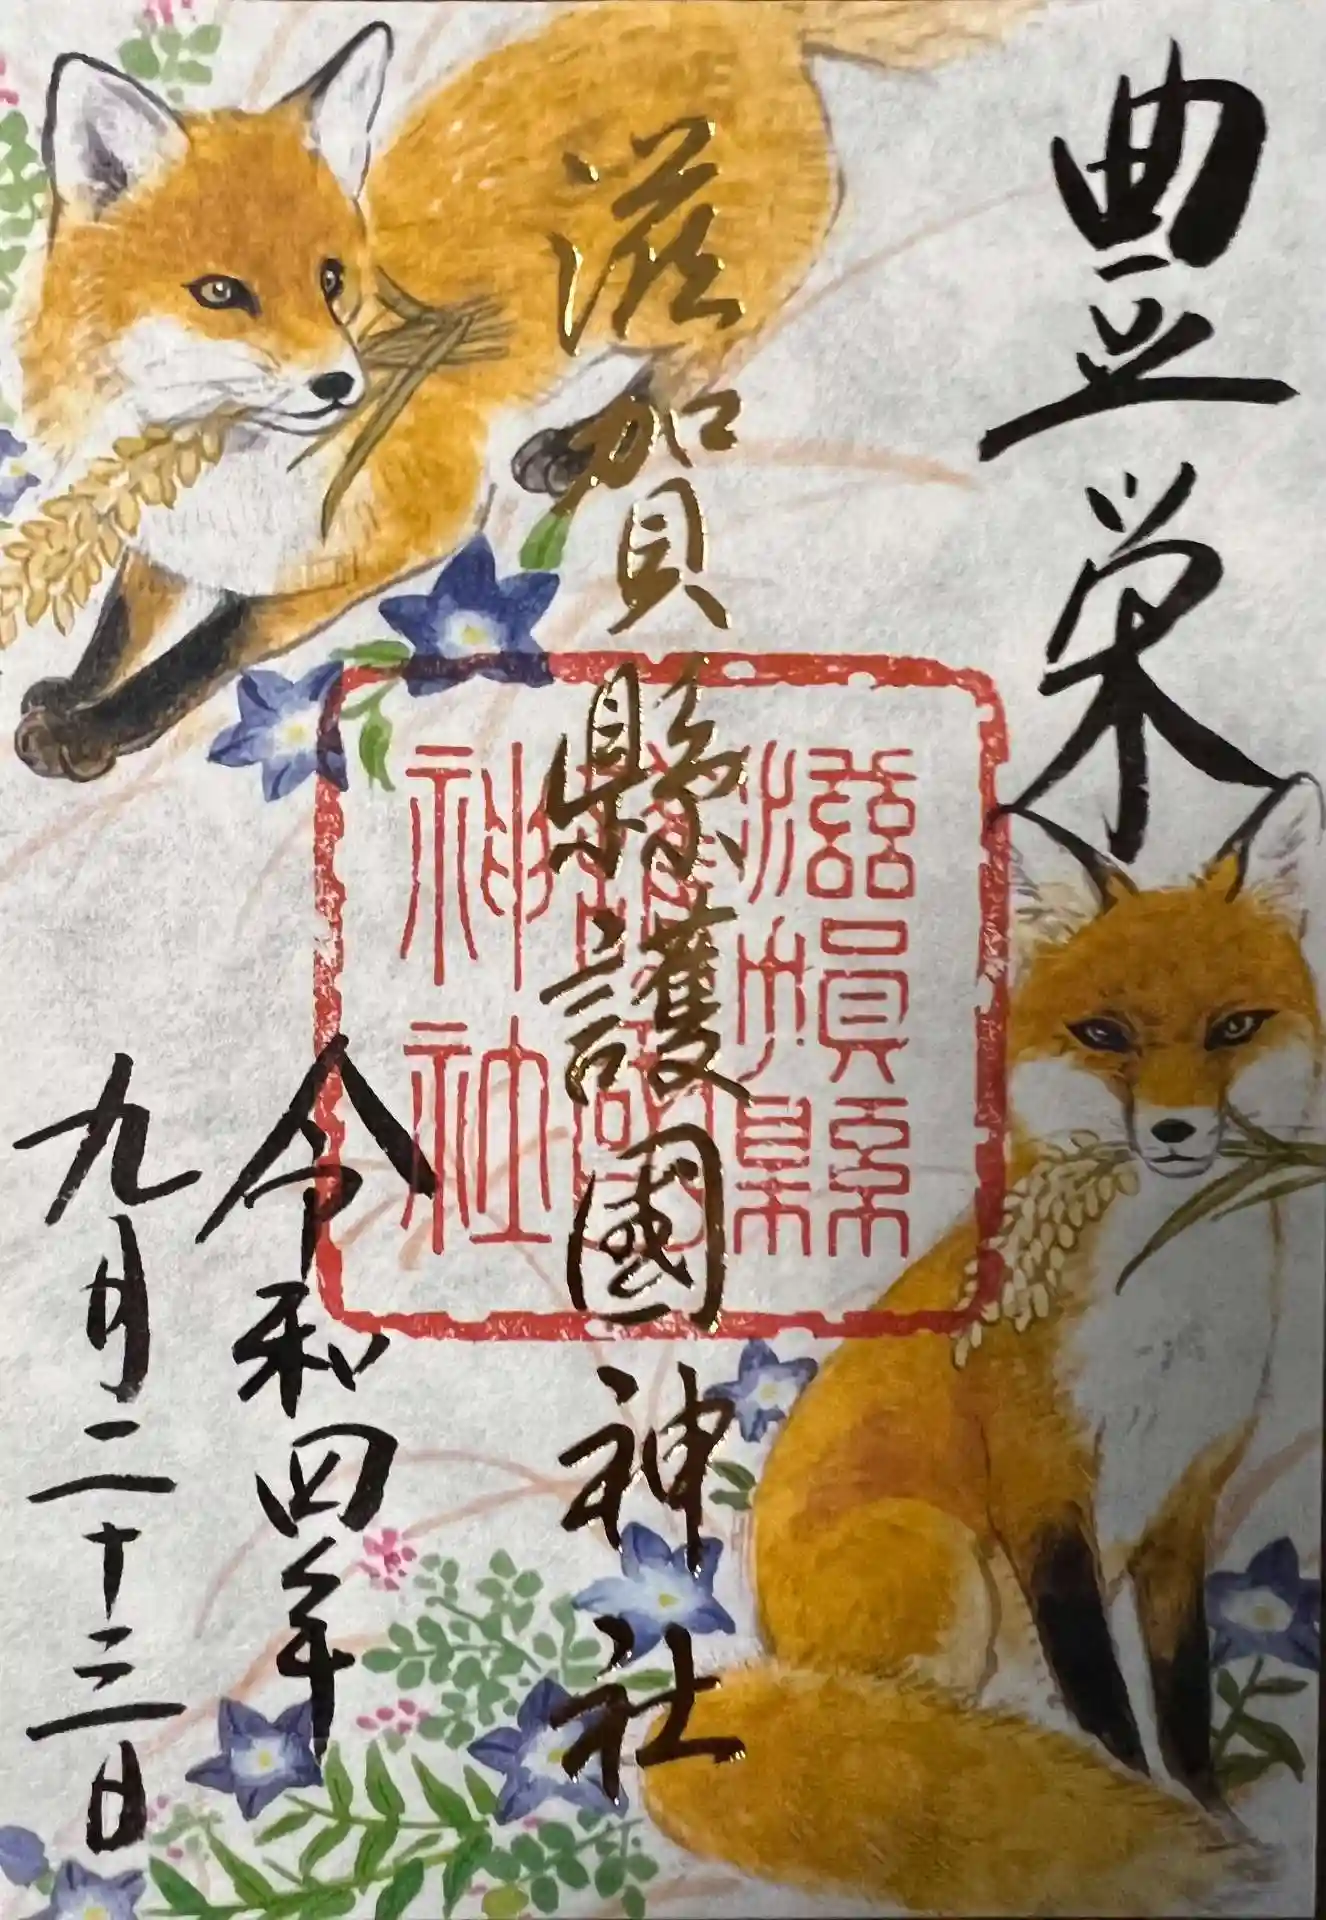 豊栄
滋賀縣護國神社
滋賀縣
護國
神社
令和四年
九月二十三日